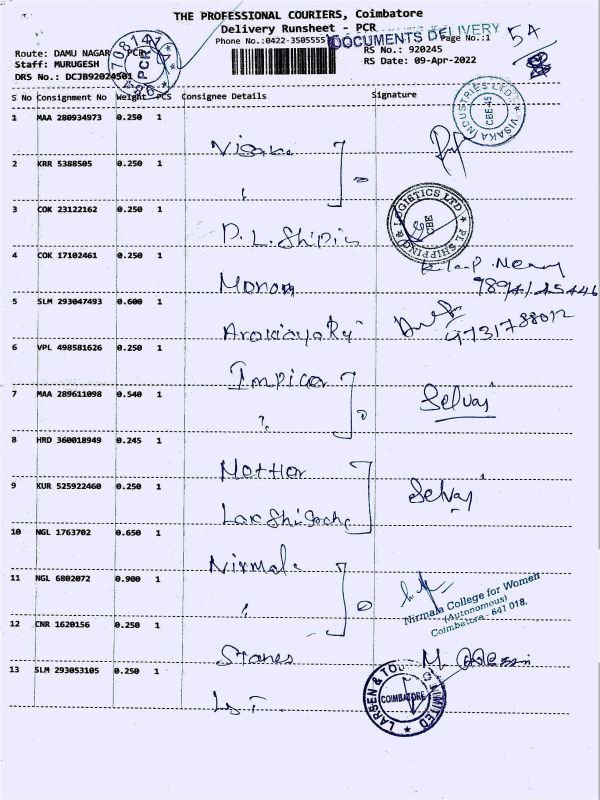 THE PROFESSIONAL COURIERS, Coimbatore
Delivery Runsheet - PCR
Phone No.:0422-3505555
DOCUMENTS DELIVERY
Page No.:1
5A
Route: DAMU NAGAR - PCR
RS No.: 920245
Staff: MURUGESH
RS Date: 09-Apr-2022
DRS No.: DCJB92024501
PCR
S No Consignment No Weight PCS Consignee Details Signature
VISAKA INDUSTRIES LTD.
CBE-45
1 MAA 280934973 0.250 1 Visaka
2 KRR 5388505 0.250 1 "
3 COK 23122162 0.250 1 P.L. Shipin
PL SHIPPING & LOGISTICS LTD
CBE
4 COK 17102461 0.250 1 Monom
5 SLM 293047493 0.600 1 Arokiyaraj
9731788012
6 VPL 498581626 0.250 1 Impicor
7 MAA 289611098 0.540 1 " Selvaj
8 HRD 360018949 0.245 1 Mother
9 KUR 525922460 0.250 1 Selvaj
10 NGL 1763702 0.650 1 Nirmala
11 NGL 6802072 0.900 1 "
Nirmala College for Women
(Autonomous)
Coimbatore - 641 018.
12 CNR 1620156 0.250 1 Stanes
13 SLM 293053105 0.250 1 L&T
LARSEN & TOUBRO LIMITED
COIMBATORE